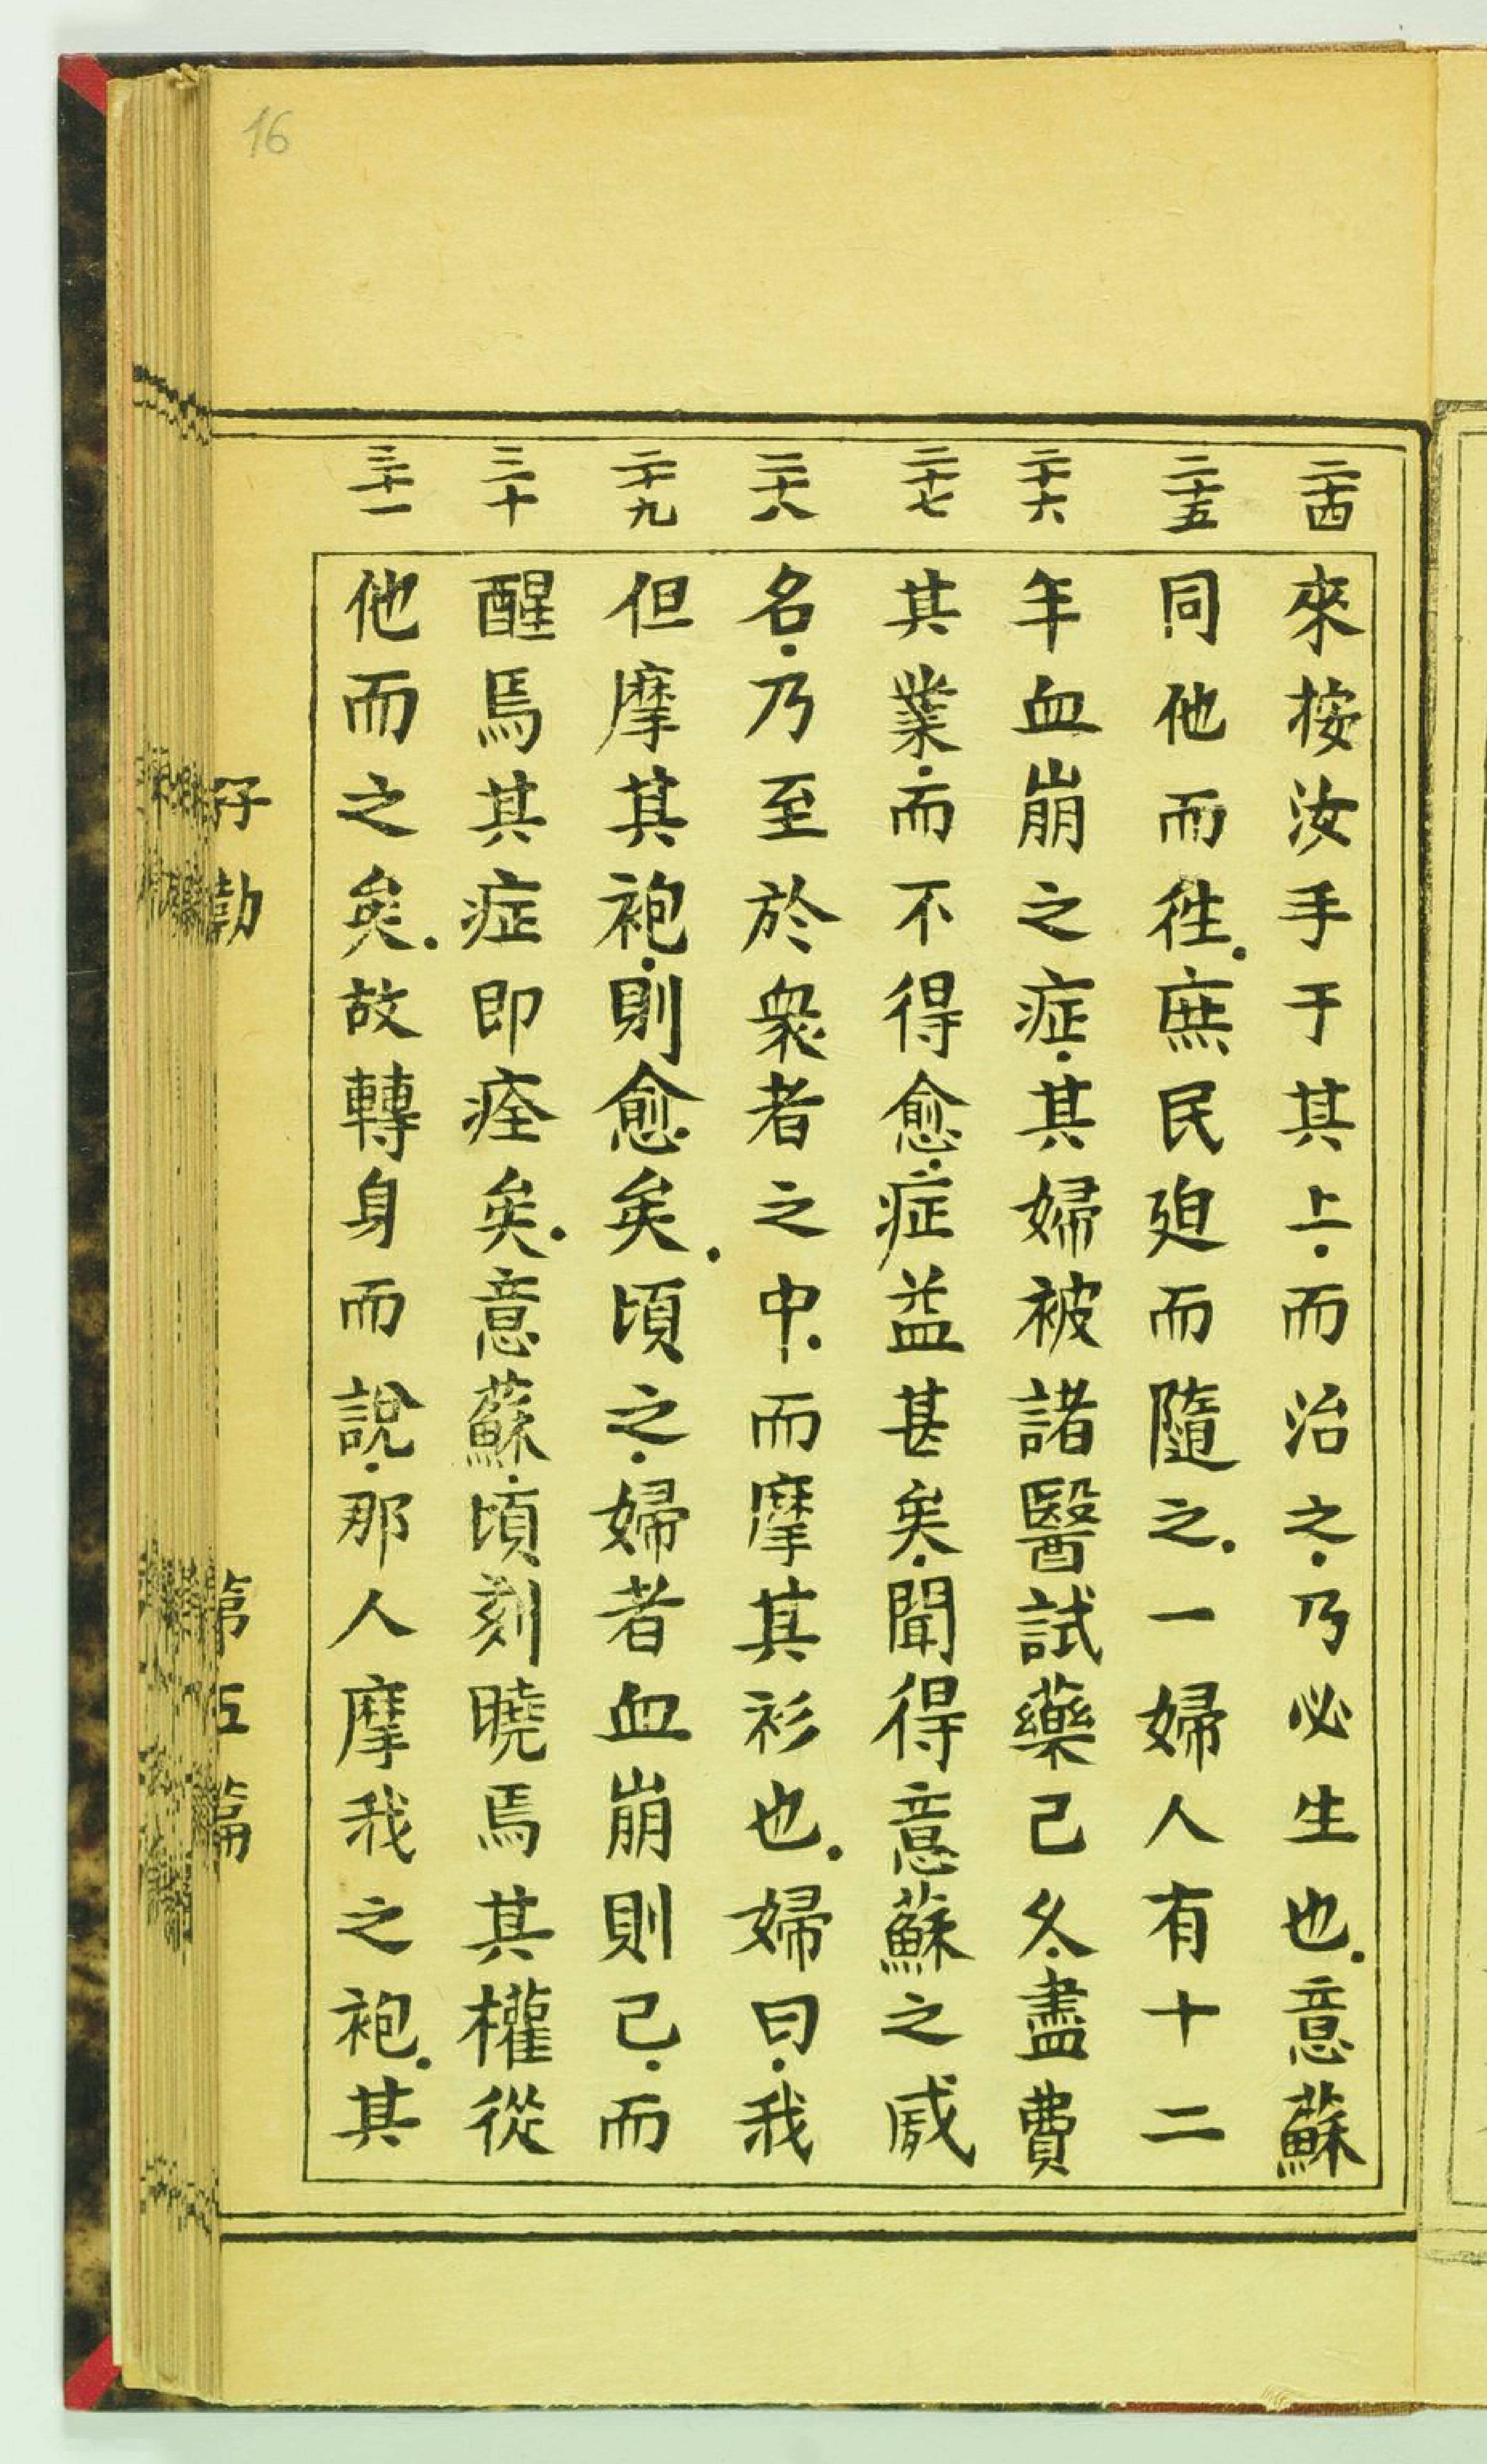 16
二十四
來按汝手于其上.而治之.乃必生也.意蘇
二十五
同他而徃.庶民廹而隨之.一婦人有十二
二十六
年血崩之症.其婦被諸醫試藥已久.盡費
二十七
其業.而不得愈.症益甚矣.聞得意蘇之威
二十八
名.乃至於衆者之中.而摩其衫也.婦曰.我
二十九
但摩其袍.則愈矣.頃之.婦者血崩則已.而
三十
醒焉其症即痊矣.意蘇.頃刻曉焉其權從
三十一
他而之矣.故轉身而說.那人摩我之袍.其
孖勒
第五篇